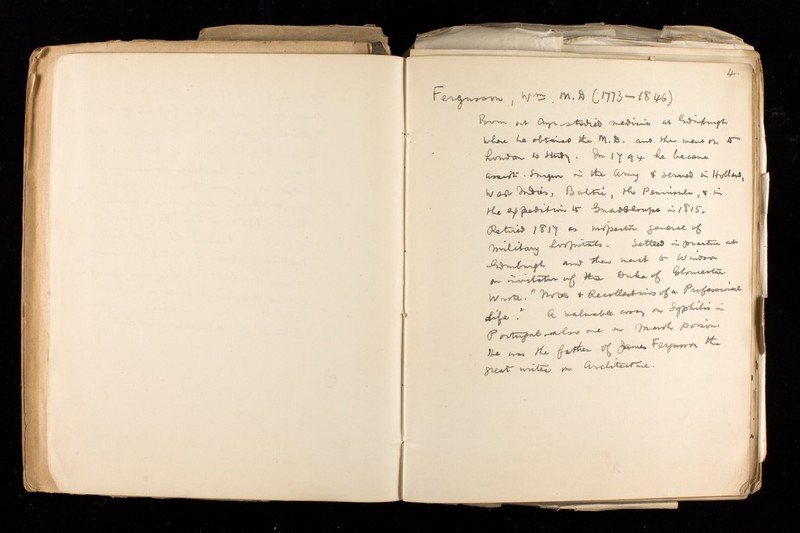 4
Fergusson, Wm. M.D (1773–1846)
Born at Ayr – studied medicine at Edinburgh
where he obtained the M.D. and then went on to
London to study. In 1794 he became
assist. Surgeon in the Army & served in Holland,
West Indies, Baltic, the Peninsula, & in
the expedition to Guadeloupe in 1815.
Retired 1817 as inspector general of
military hospitals. Settled in practice at
Edinburgh and then went to Windsor
on invitation of the Duke of Gloucester
Wrote. "Notes & Recollections of a Professional
Life." A valuable essay on Syphilis in
Portugal – also one on Marsh poison.
He was the father of James Fergusson the
great writer on Architecture.